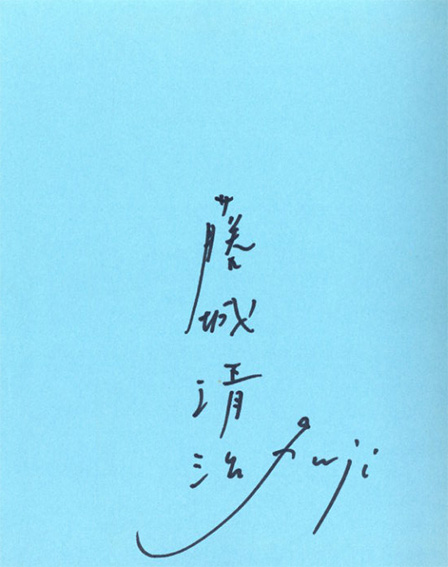 藤城清治
Fuji